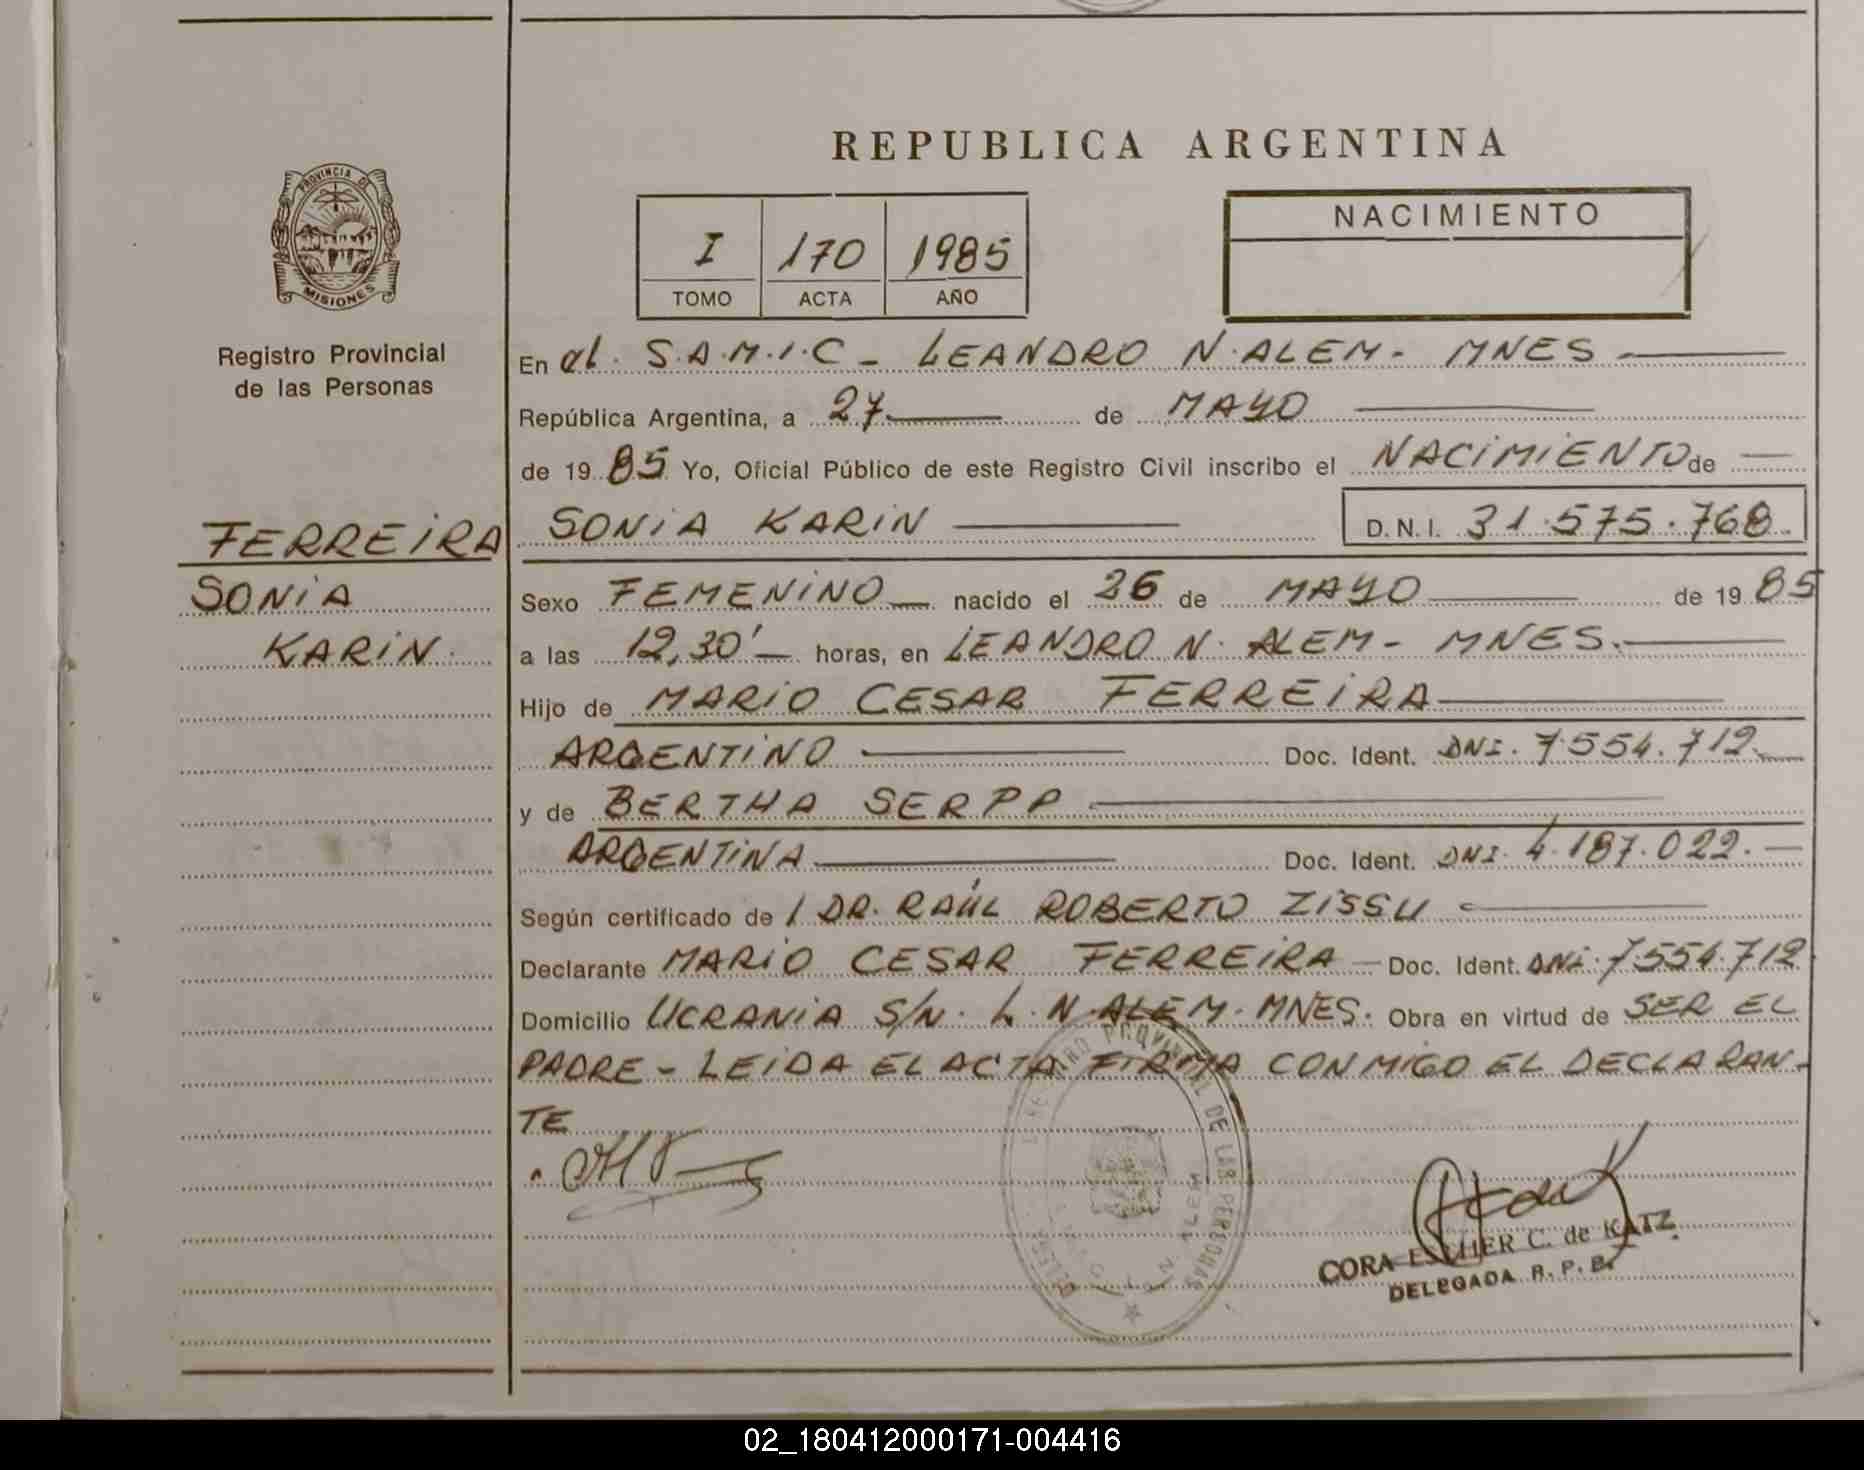 REPUBLICA ARGENTINA
PROVINCIA DE
MISIONES
Registro Provincial
de las Personas
I 170 1985
TOMO ACTA AÑO
NACIMIENTO
En el. S.A.M.I.C - LEANDRO N. ALEM - MNES
República Argentina, a 27 de MAYO
de 1985 Yo, Oficial Público de este Registro Civil inscribo el NACIMIENTO de
SONIA KARIN D.N.I. 31.575.768
FERREIRA
SONIA
KARIN
Sexo FEMENINO nacido el 26 de MAYO de 1985
a las 12,30' horas, en LEANDRO N. ALEM - MNES.
Hijo de MARIO CESAR FERREIRA
ARGENTINO Doc. Ident. DNI. 7.554.712
y de BERTHA SERPP
ARGENTINA Doc. Ident. DNI. 4.187.022.
Según certificado de l DR. RAÚL ROBERTO ZISSU
Declarante MARIO CESAR FERREIRA Doc. Ident. DNI. 7.554.712
Domicilio UCRANIA S/N. L. N. ALEM - MNES. Obra en virtud de SER EL
PADRE - LEIDA EL ACTA FIRMA CONMIGO EL DECLARAN-
TE
DE LAS PERSONAS
N. ALEM
CORA ESTHER C. de KATZ
DELEGADA R. P. P.
02_180412000171-004416